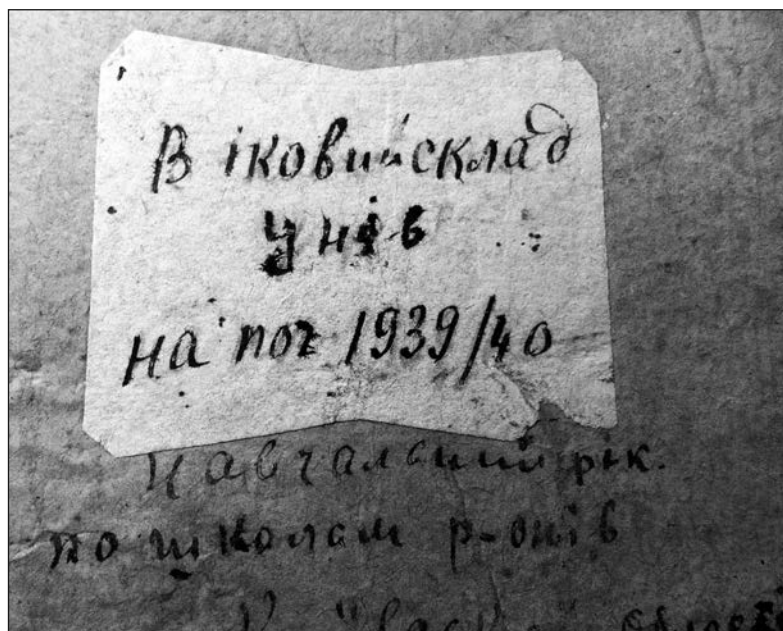 Віковий склад
унів
на поч 1939/40
навчальний рік.
по школам р-онів